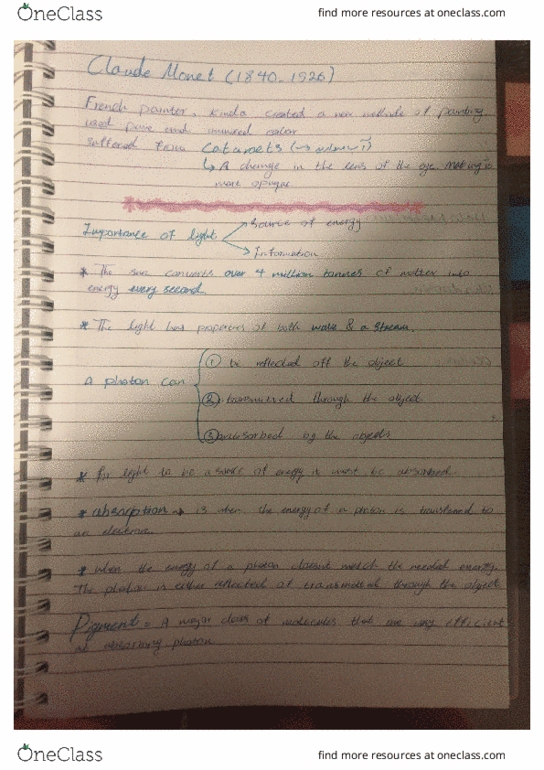 OneClass
find more resources at oneclass.com
Claude Monet (1840-1926)
French painter, kinda created a new methode of painting
used pure and unmixed color
suffered from Cataracts
↳ A change in the lens of the eye making it
more opaque
Importance of light
Source of energy
Information
* The sun converts over 4 million tonnes of matter into
energy every second.
* The light has properties of both wave & a stream.
A photon can
① be reflected off the object
② transmitted through the object
③ absorbed by the objects
* For light to be a source of energy it must be absorbed.
* absorption → is when the energy of a photon is transfered to
an electron.
* when the energy of a photon doesnt match the needed energy.
The photon is either reflected or transmitted through the object
Pigment = A major class of molecules that are very efficient
at absorbing photon
OneClass
find more resources at oneclass.com